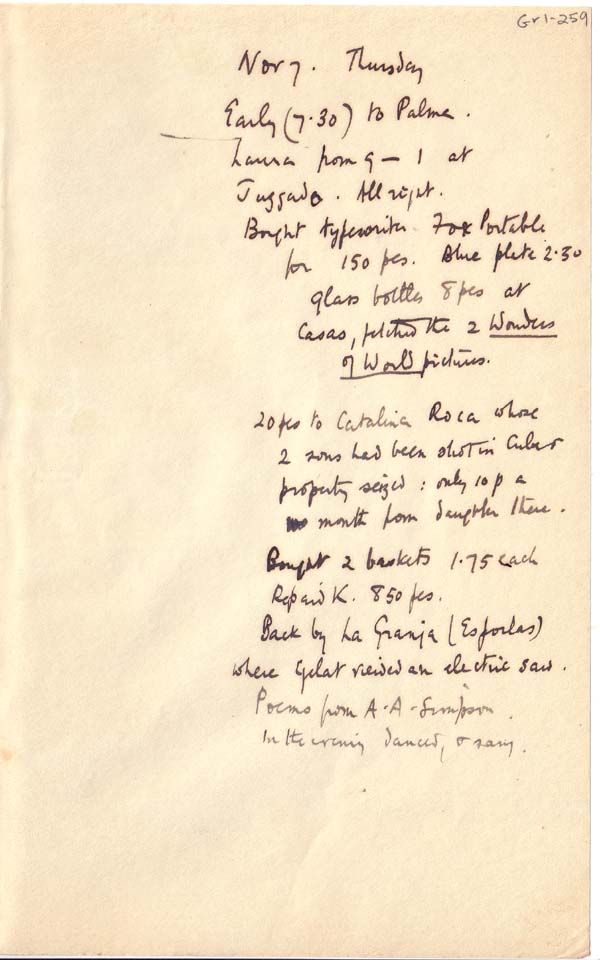 Gr1-259
Nov 7. Thursday
Early (7.30) to Palma.
Laura from 9 – 1 at
Juzgado. All right.
Bought typewriter Fox Portable
for 150 pes. Blue plate 2.50
glass bottles 8 pes at
Casas, fetched the 2 Wonders
of World pictures.
20 pes to Catalina Roca whose
2 sons had been shot in Cuba &
property seized: only 10 p a
month from daughter there.
Bought 2 baskets 1.75 each
Repaid K. 850 pes.
Back by La Granja (Esporlas)
where Gelat viewed an electric saw.
Poems from A.A. Simpson.
In the evening danced, & sang.